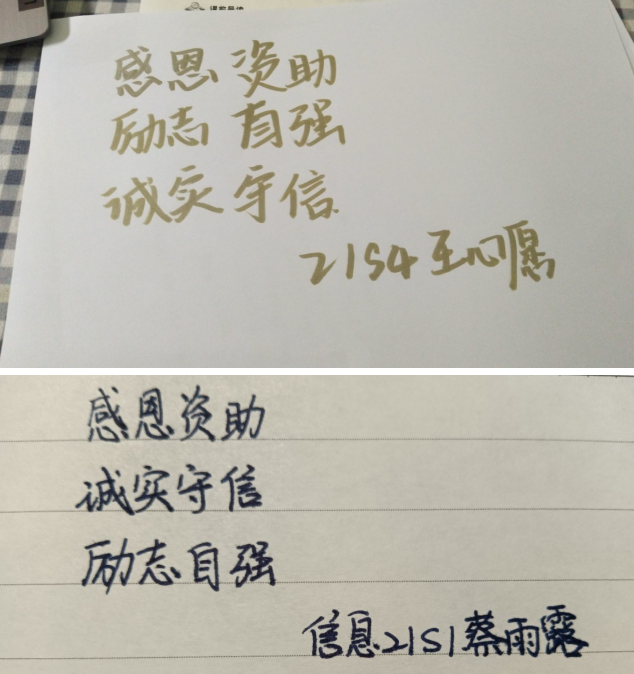 感恩资助
励志自强
诚实守信
2154 王心愿
感恩资助
诚实守信
励志自强
信息2151蔡雨露